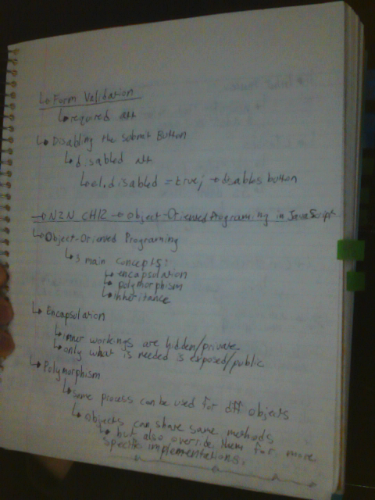 ↳ Form Validation
↳ required att
↳ Disabling the submit Button
↳ disabled att
↳ el.disabled = true; → disables button
CH12 → Object-Oriened Programing in JavaScript
↳ Object-Oriened Programing
↳ 3 main concepts:
↳ encapsulation
↳ polymorphism
↳ inheritance
↳ Encapsulation
↳ inner workings are hidden/private
↳ only what is needed is exposed/public
↳ Polymorphism
↳ same process can be used for diff objects
↳ objects can share same methods
↳ but also override them for more
specific implementations.